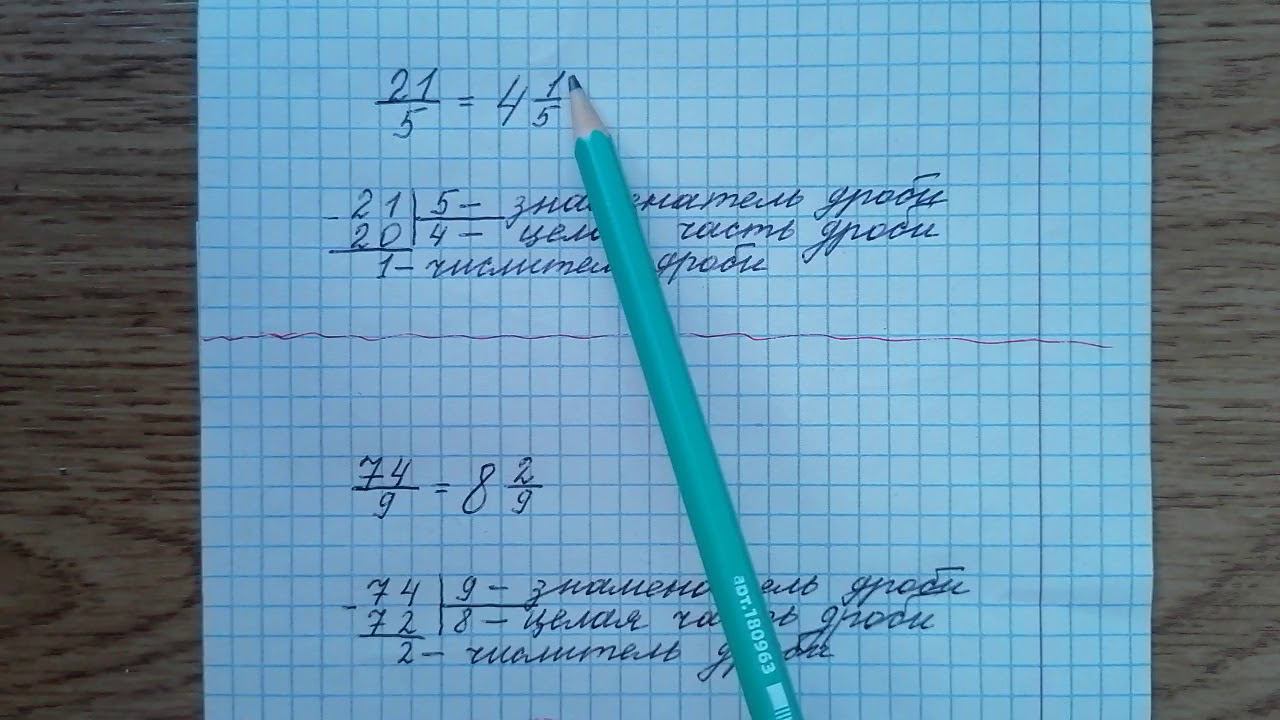 21/5 = 4 1/5
- 21 | 5 - знаменатель дроби
20 | 4 - целая часть дроби
1 - числитель дроби
74/9 = 8 2/9
- 74 | 9 - знаменатель дроби
72 | 8 - целая часть дроби
2 - числитель дроби
арт.180963